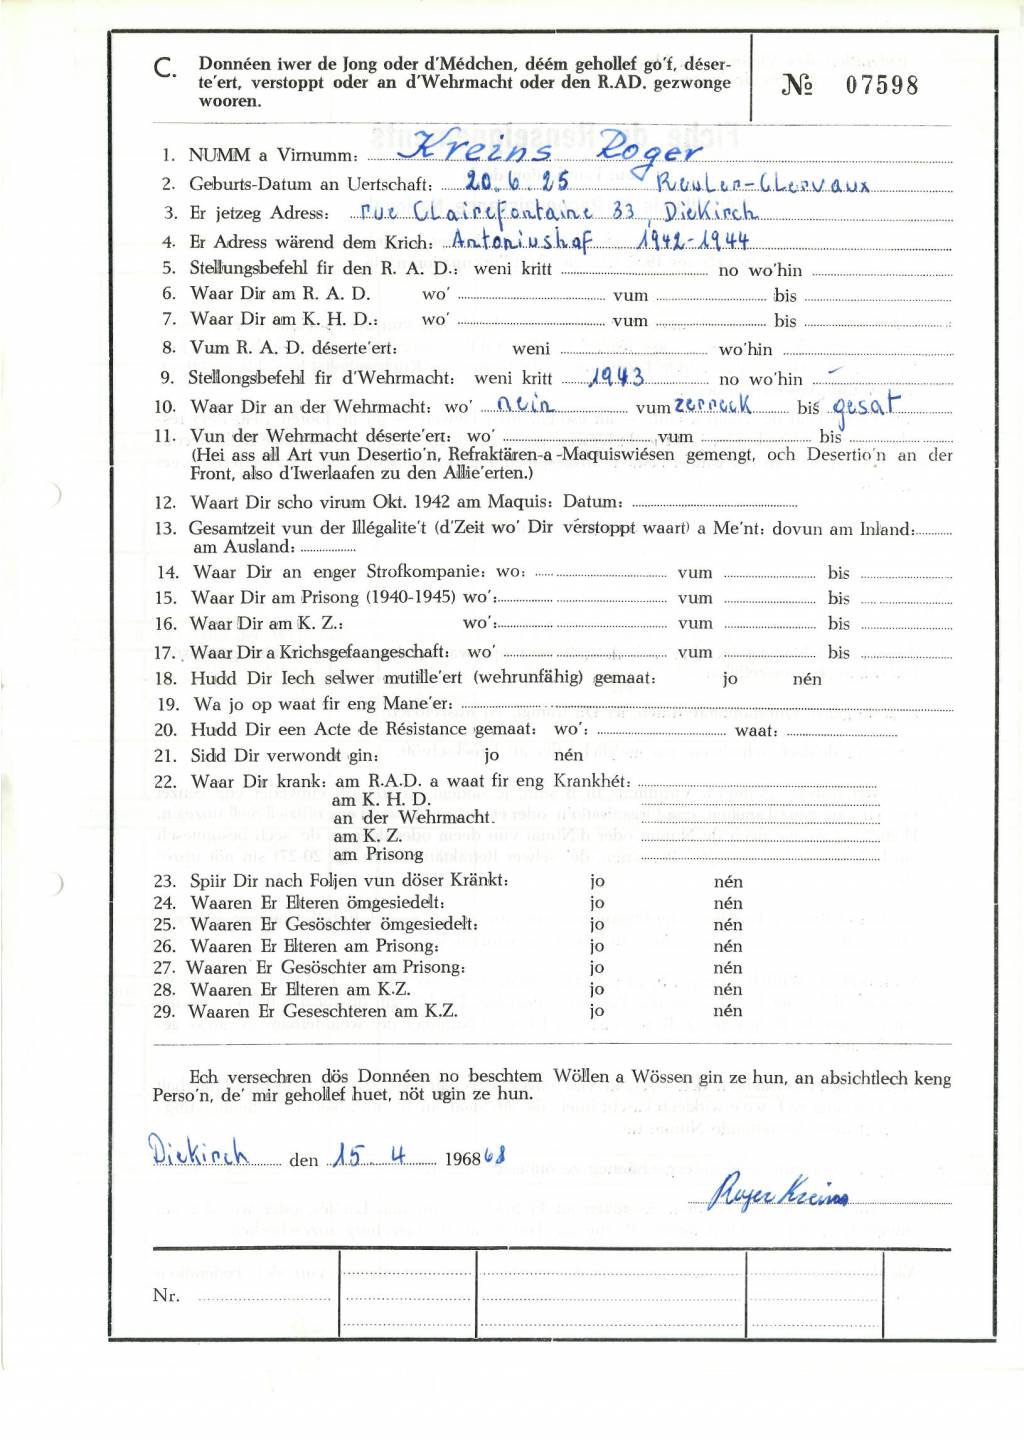 C. Donnéen iwer de Jong oder d'Médchen, déém gehollef go'f, déser-
te'ert, verstoppt oder an d'Wehrmacht oder den R.AD. gezwonge
wooren.
№ 07598
1. NUMM a Virnumm: Kreins Roger
2. Geburts-Datum an Uertschaft: 20.6.25 Reuler-Clervaux
3. Er jetzeg Adress: rue Clairefontaine 33, Diekirch
4. Er Adress wärend dem Krich: Antoniushof 1942-1944
5. Stellungsbefehl fir den R. A. D.: weni kritt no wo'hin
6. Waar Dir am R. A. D. wo' vum bis
7. Waar Dir am K. H. D.: wo' vum bis
8. Vum R. A. D. déserte'ert: weni wo'hin
9. Stellongsbefehl fir d'Wehrmacht: weni kritt 1943 no wo'hin -
10. Waar Dir an der Wehrmacht: wo' nein vum zerreck bis gesat
11. Vun der Wehrmacht déserte'ert: wo' vum bis
(Hei ass all Art vun Desertio'n, Refraktären-a-Maquiswiésen gemengt, och Desertio'n an der
Front, also d'Iwerlaafen zu den Allie'erten.)
12. Waart Dir scho virum Okt. 1942 am Maquis: Datum:
13. Gesamtzeit vun der Illégalite't (d'Zeit wo' Dir verstoppt waart) a Me'nt: dovun am Inland:
am Ausland:
14. Waar Dir an enger Strofkompanie: wo: vum bis
15. Waar Dir am Prisong (1940-1945) wo': vum bis
16. Waar Dir am K. Z.: wo': vum bis
17. Waar Dir a Krichsgefaangeschaft: wo' vum bis
18. Hudd Dir Iech selwer mutille'ert (wehrunfähig) gemaat: jo nén
19. Wa jo op waat fir eng Mane'er:
20. Hudd Dir een Acte de Résistance gemaat: wo': waat:
21. Sidd Dir verwondt gin: jo nén
22. Waar Dir krank: am R.A.D. a waat fir eng Krankhét:
am K. H. D.
an der Wehrmacht.
am K. Z.
am Prisong
23. Spiir Dir nach Foljen vun döser Kränkt: jo nén
24. Waaren Er Elteren ömgesiedelt: jo nén
25. Waaren Er Gesöschter ömgesiedelt: jo nén
26. Waaren Er Elteren am Prisong: jo nén
27. Waaren Er Gesöschter am Prisong: jo nén
28. Waaren Er Elteren am K.Z. jo nén
29. Waaren Er Geseschteren am K.Z. jo nén
Ech versechren dös Donnéen no beschtem Wöllen a Wössen gin ze hun, an absichtlech keng
Perso'n, de' mir gehollef huet, nöt ugin ze hun.
Diekirch den 15. 4 1968 68
Roger Kreins
Nr.